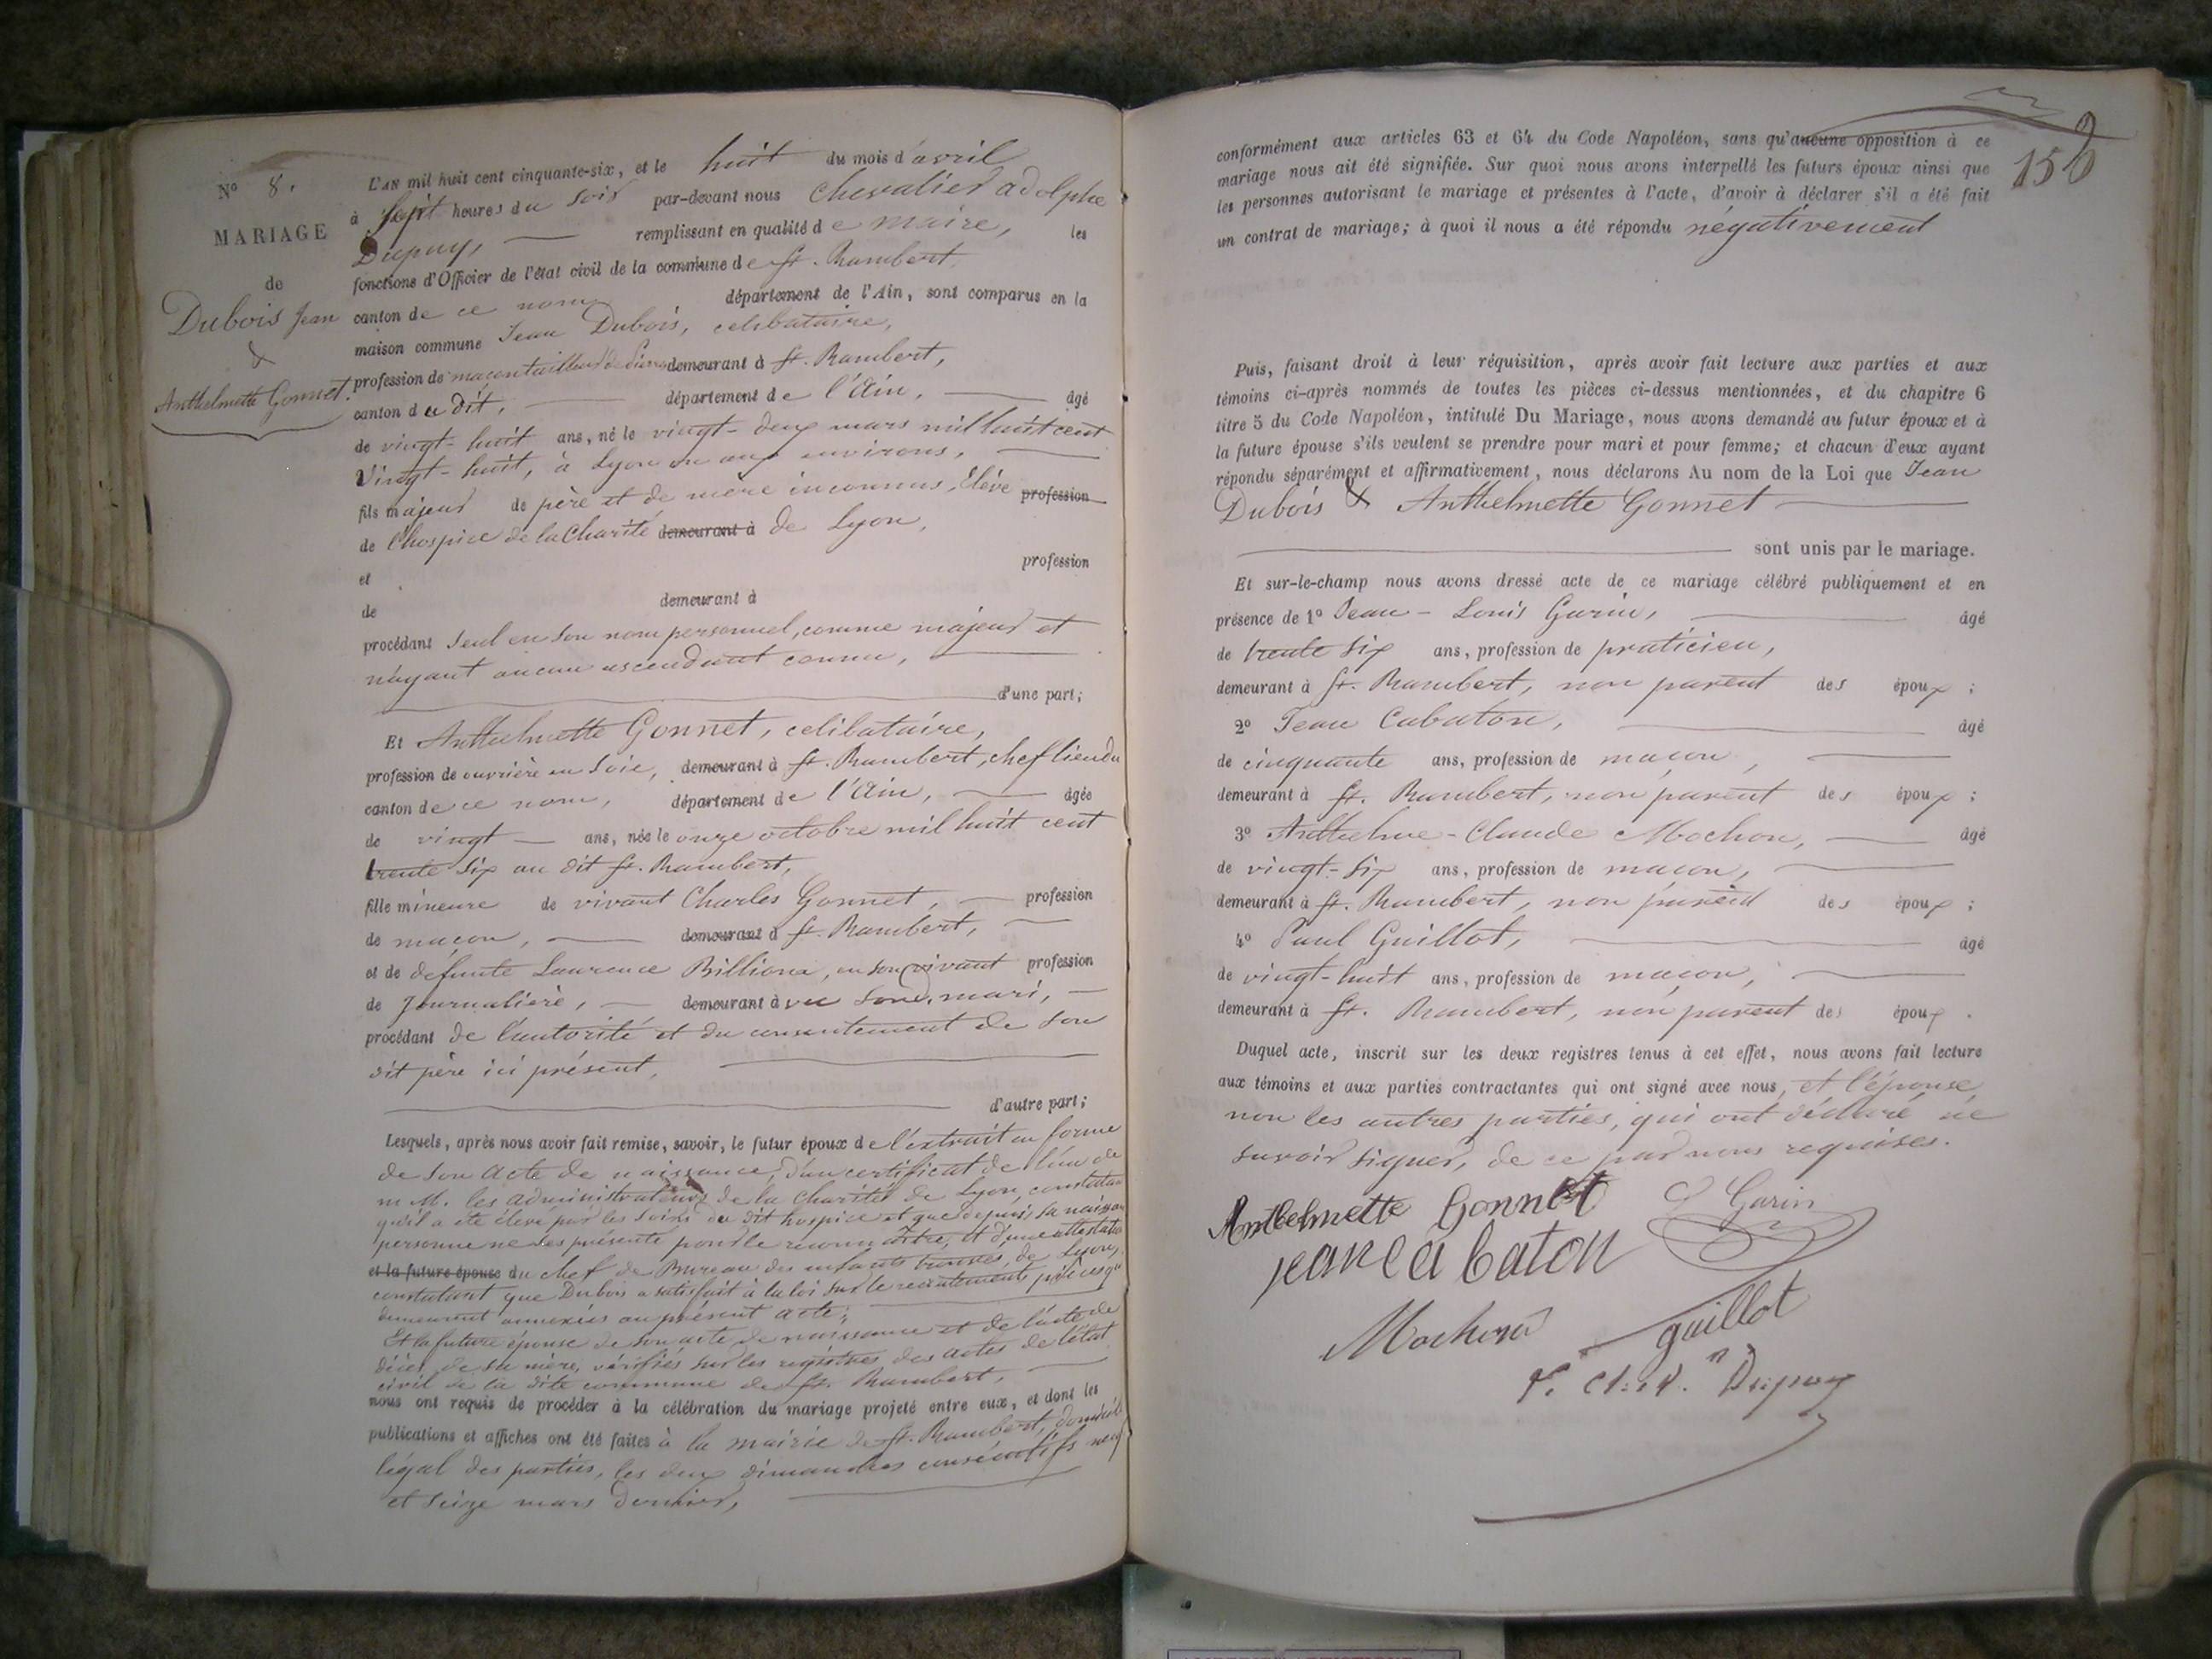 N° 8.
MARIAGE
de
Dubois Jean
&
Anthelmette Gonnet.
L'AN mil huit cent cinquante-six, et le huit du mois d'avril
à Sept heures du Soir par-devant nous Chevalier adolphe
Dupuy, remplissant en qualité de maire, les
fonctions d'Officier de l'état civil de la commune de St. Rambert
canton de ce nom département de l'Ain, sont comparus en la
maison commune Jean Dubois, celibataire,
profession de maçon tailleur de Pierre demeurant à St. Rambert,
canton du dit, département de l'Ain, âgé
de vingt-huit ans, né le vingt-deux mars mil huit cent
Vingt-huit, à Lyon ou aux environs,
fils majeur de père et de mère inconnus, Élève profession
de l'hospice de la Charité demeurant à de Lyon,
et profession
de demeurant à
procédant Seul en Son nom personnel, comme majeur et
n'ayant aucun ascendant connu,
d'une part;
Et Anthelmette Gonnet, celibataire,
profession de ouvrière en Soie, demeurant à St. Rambert, chef lieu du
canton de ce nom, département de l'Ain, âgée
de vingt ans, née le onze octobre mil huit cent
trente Six au dit St. Rambert,
fille mineure de vivant Charles Gonnet, profession
de maçon, demeurant à St. Rambert,
et de défunte Laurence Billion, en son vivant profession
de Journalière, demeurant à vu Son d. mari,
procédant de l'autorité et du consentement de Son
dit père ici présent,
d'autre part;
Lesquels, après nous avoir fait remise, savoir, le futur époux de l'extrait en forme
de Son acte de naissance, d'un certificat de l'un de
m M. les administrateurs de la Charité de Lyon, constatant
qu'il a été élevé par les Soins du dit hospice et que depuis sa naissance
personne ne s'est présenté pour le reconnaître, et d'une attestation
et la future épouse du chef de Bureau des enfants trouvés, de Lyon,
constatant que Dubois a satisfait à la loi sur le recrutement, pièces qui
demeurent annexées au présent acte;
Et la future épouse de son acte de naissance et de l'acte de
décès de sa mère, vérifiés sur les registres des actes de l'état
civil de la dite commune de St. Rambert,
nous ont requis de procéder à la célébration du mariage projeté entre eux, et dont les
publications et affiches ont été faites à la mairie de St. Rambert, domicile
légal des parties, les deux dimanches consécutifs neuf
et Seize mars dernier,
150
conformément aux articles 63 et 64 du Code Napoléon, sans qu'aucune opposition à ce
mariage nous ait été signifiée. Sur quoi nous avons interpellé les futurs époux ainsi que
les personnes autorisant le mariage et présentes à l'acte, d'avoir à déclarer s'il a été fait
un contrat de mariage; à quoi il nous a été répondu négativement
Puis, faisant droit à leur réquisition, après avoir fait lecture aux parties et aux
témoins ci-après nommés de toutes les pièces ci-dessus mentionnées, et du chapitre 6
titre 5 du Code Napoléon, intitulé Du Mariage, nous avons demandé au futur époux et à
la future épouse s'ils veulent se prendre pour mari et pour femme; et chacun d'eux ayant
répondu séparément et affirmativement, nous déclarons Au nom de la Loi que Jean
Dubois & Anthelmette Gonnet
sont unis par le mariage.
Et sur-le-champ nous avons dressé acte de ce mariage célébré publiquement et en
présence de 1° Jean-Louis Garin, âgé
de trente Six ans, profession de praticien,
demeurant à St. Rambert, non parent des époux;
2° Jean Cabaton, âgé
de cinquante ans, profession de maçon,
demeurant à St. Rambert, non parent des époux;
3° Anthelme-Claude Mochon, âgé
de vingt-Six ans, profession de maçon,
demeurant à St. Rambert, non parent des époux;
4° Paul Guillot, âgé
de vingt-huit ans, profession de maçon,
demeurant à St. Rambert, non parent des époux.
Duquel acte, inscrit sur les deux registres tenus à cet effet, nous avons fait lecture
aux témoins et aux parties contractantes qui ont signé avec nous, et l'épouse,
non les autres parties, qui ont déclaré ne
Savoir Signer, de ce par nous requises.
Anthelmette Gonnet Garin
jean Cabaton
Mochon guillot
Dupuy